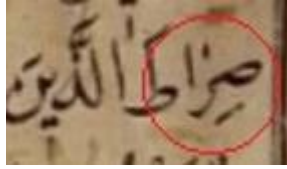 صِرَاطَ الَّذِينَ